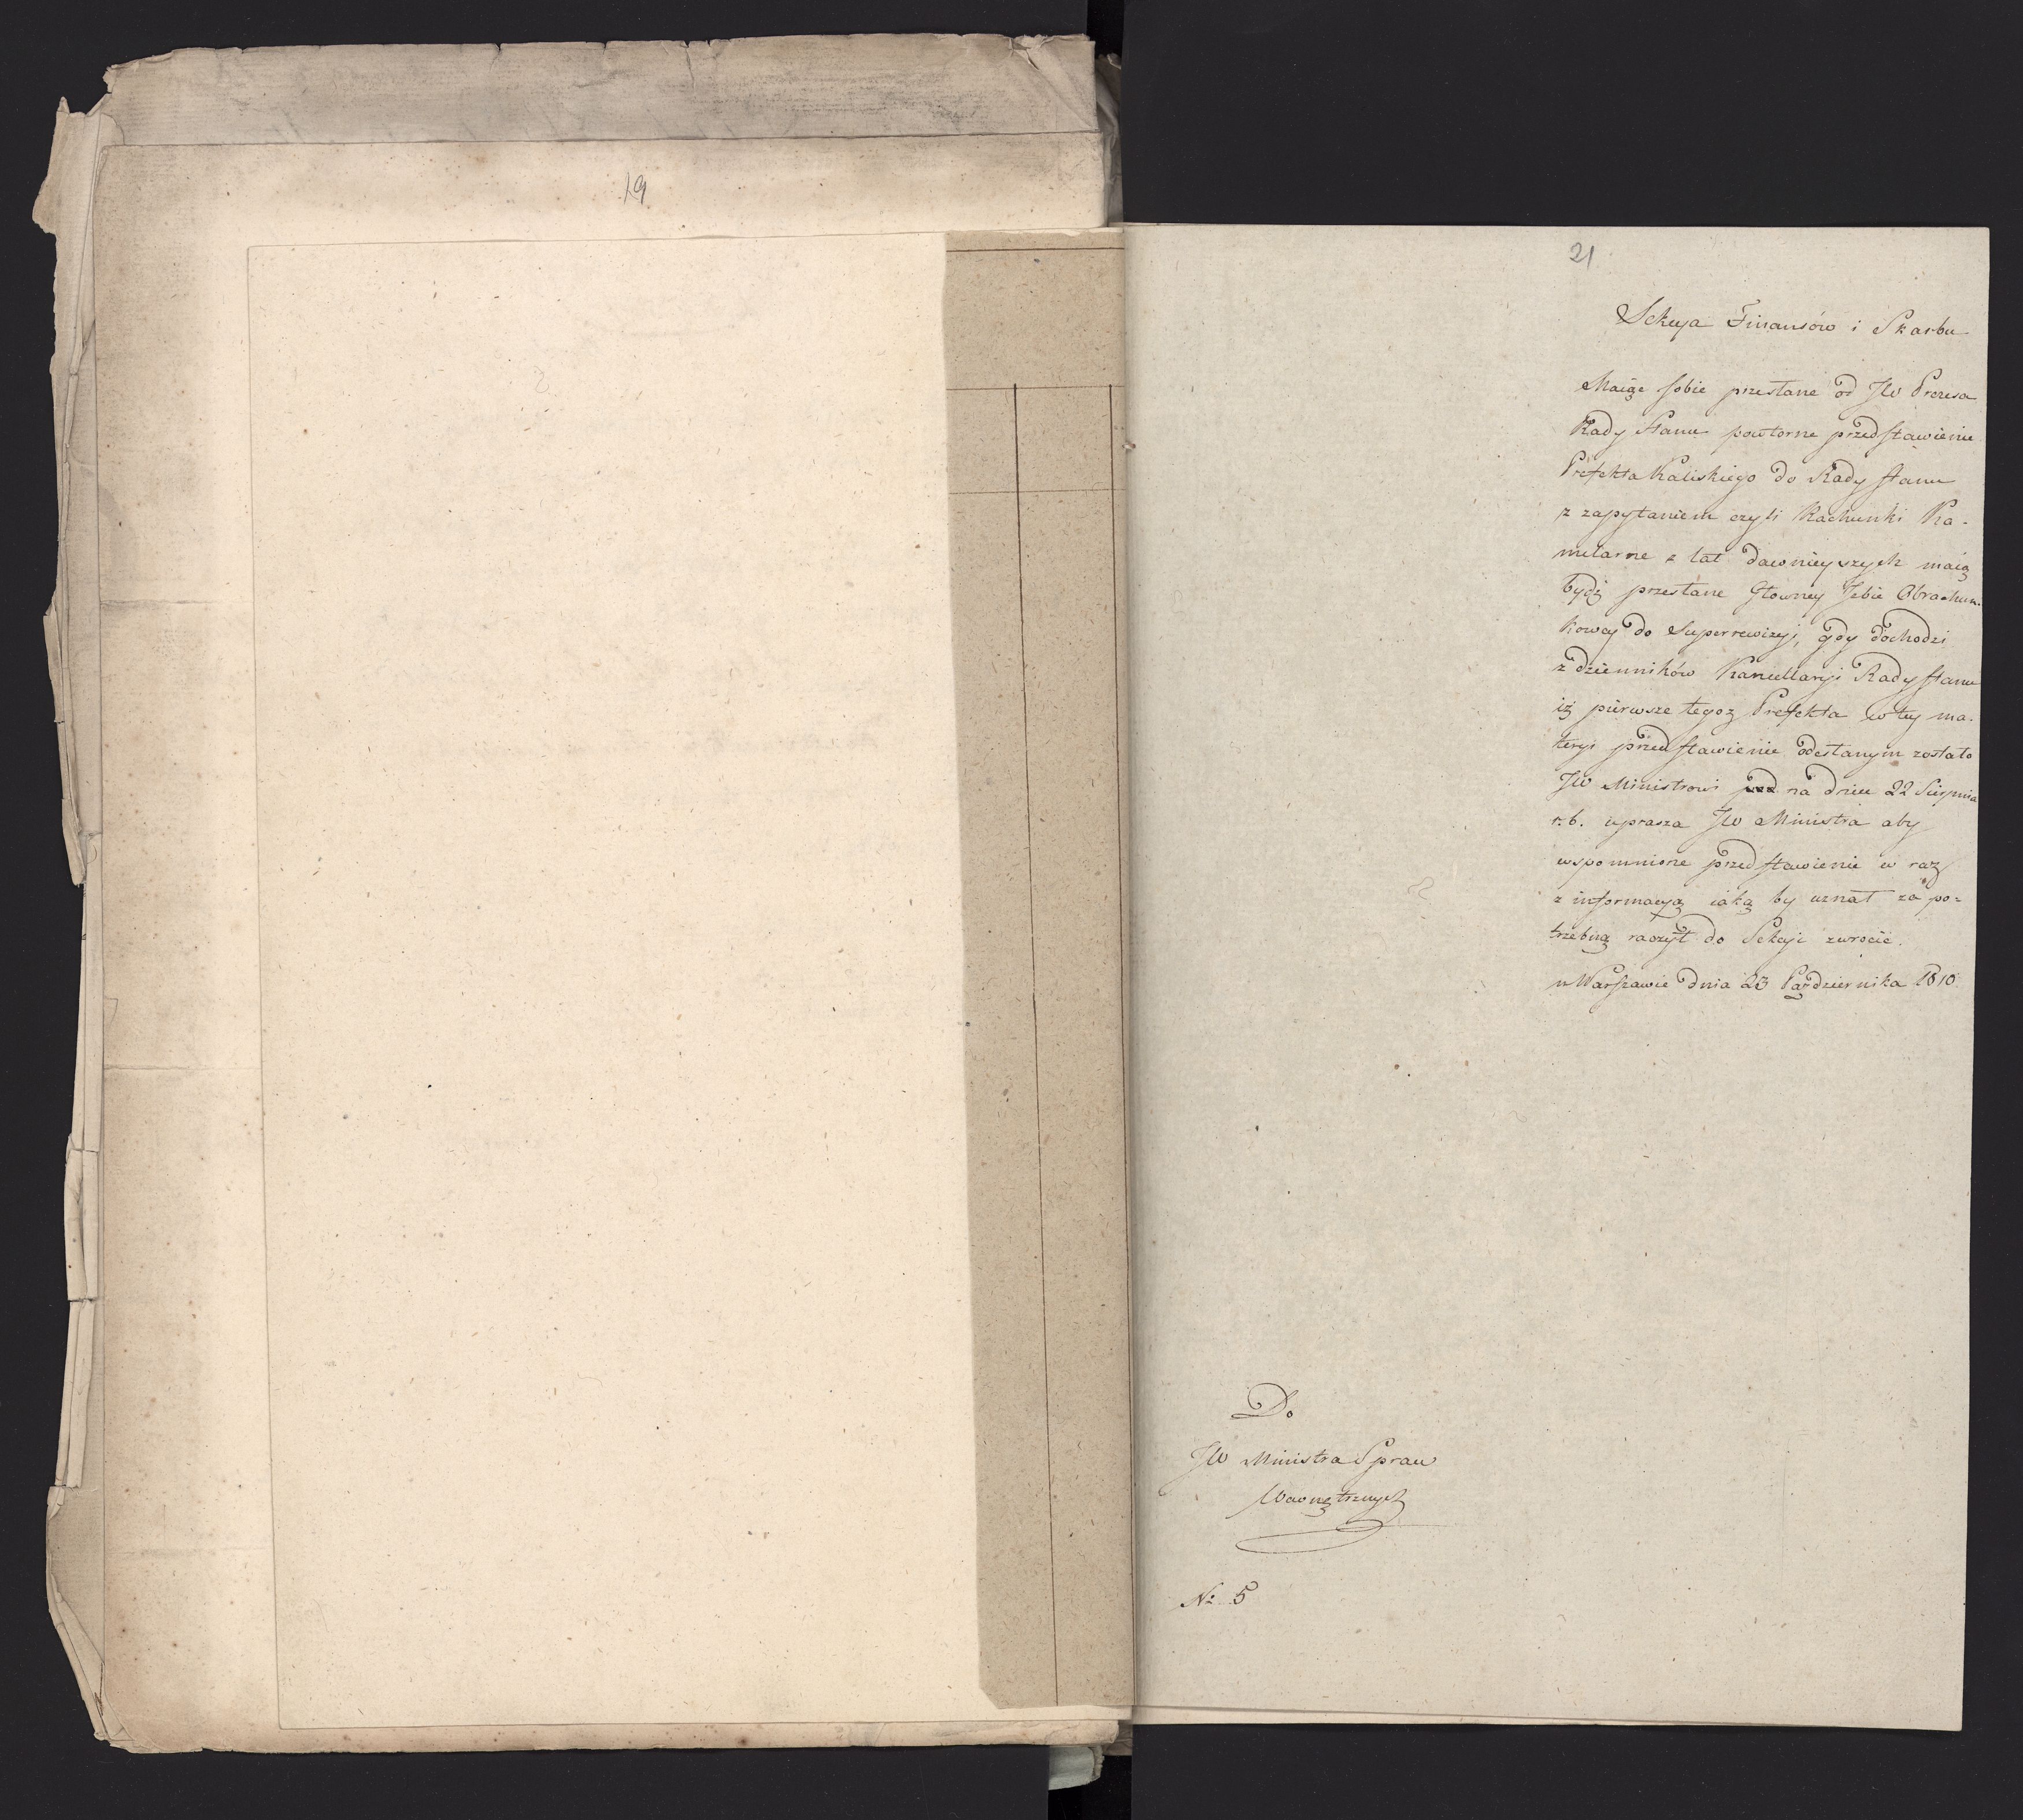 19
21
Sekcya Finansów i Skarbu
Maiąc sobie przesłane od JW Prezesa
Rady Stanu powtorne przedstawienie
Prefekta Kaliskiego do Rady stanu
z zapytaniem czyli Rachunki Ka-
melarne z lat dawnieyszych maią
bydź przesłane Głowney Izbie Obrachun-
kowey do Superrewizyi, gdy dochodzi
z dzienników Kancellaryi Rady stanu
iż pierwsze tegoż Prefekta w tey ma-
teryi przedstawienie odesłanym zostało
JW Ministrowi pod na dniu 22 Sierpnia
r. b. uprasza JW Ministra aby
wspomnione przedstawienie w raz
z informacyą iaką by uznał za po-
trzebną raczył do Sekcyi zwrocić.
w Warszawie dnia 23 Października 1810
Do
JW Ministra Spraw
Wewnętrznych
No 5